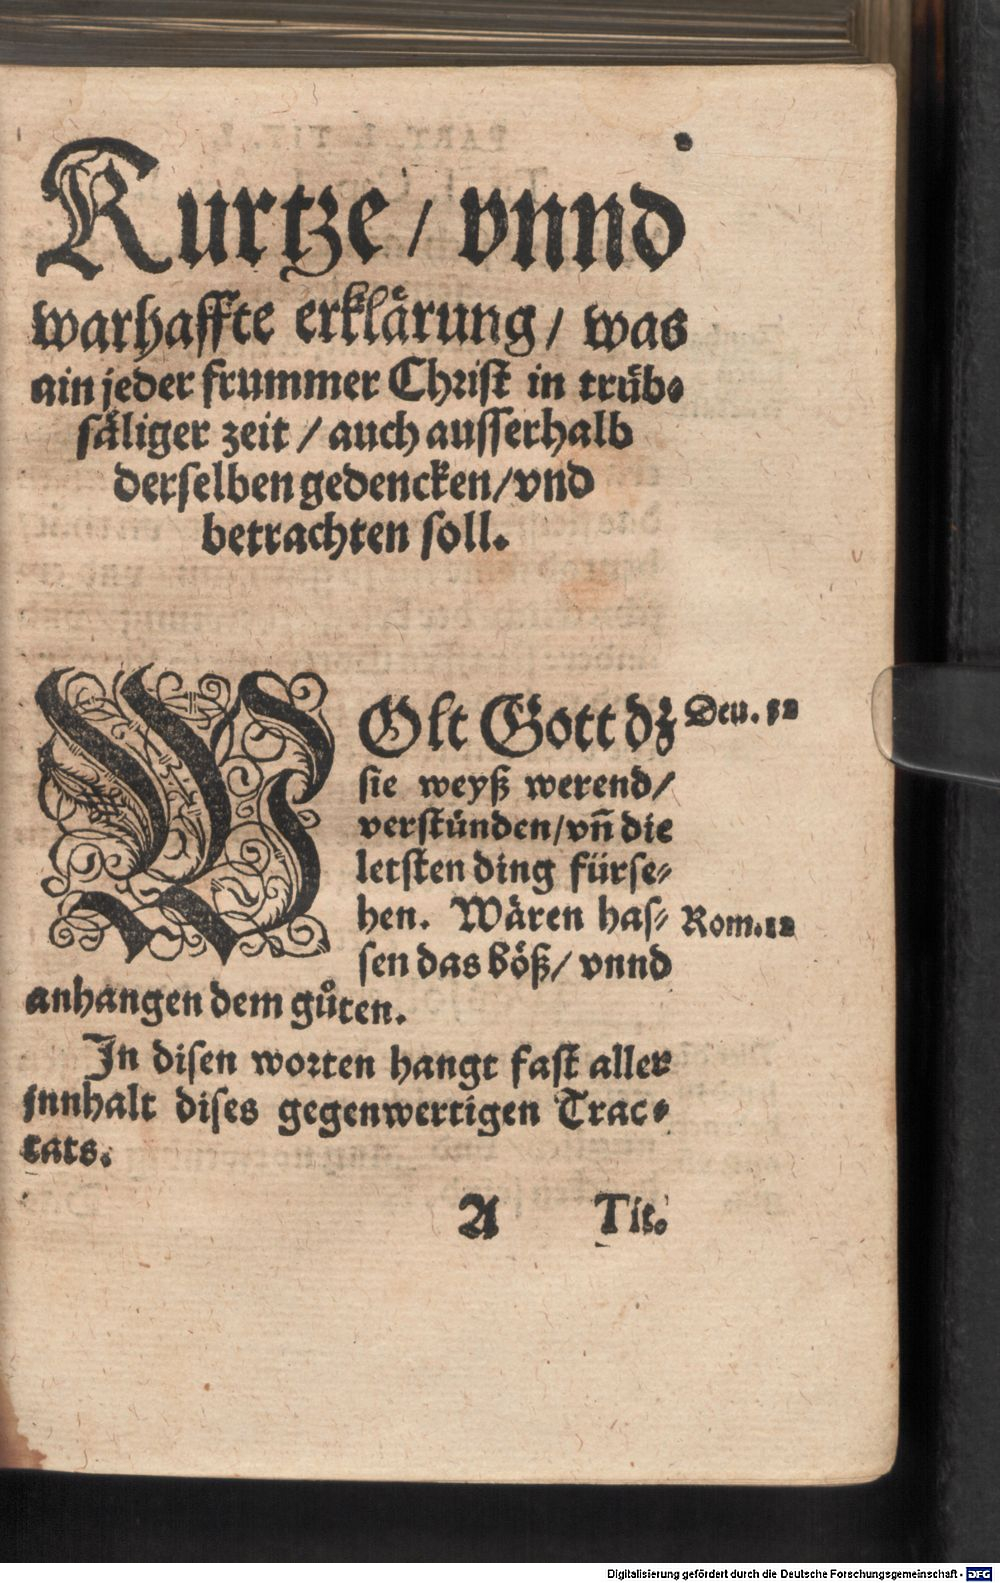 Kurtze / vnnd
warhaffte erklårung / was
ain jeder frummer Christ in trüb⸗
såliger zeit / auch ausserhalb
derselben gedencken / vnd
betrachten soll.
WOlt Gott dz Deu. 32
sie weyß werend /
verstünden / vñ die
letsten ding fürse⸗
hen. Wåren has⸗ Rom. 12
sen das böß / vnnd
anhangen dem gůten.
In disen worten hangt fast aller
jnnhalt dises gegenwertigen Trac⸗
tats.
A Tit.
Digitalisierung gefördert durch die Deutsche Forschungsgemeinschaft - DFG